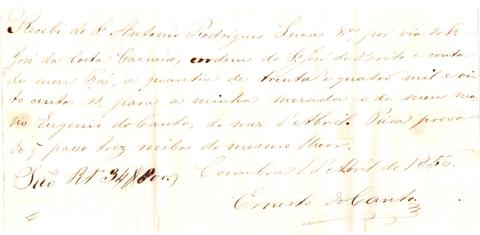 Recebi do Sr Antonio Rodrigues Luca por via do Sr
José da Costa Carneia, ordem do Sr José de Brito e conta
de meu Pai, a quantia de trenta e quatro mil e oi-
to centos rs, para a minha mezada e de meu ma-
no Eugenio do Canto, do mez d'Abril. Para prova
do q passo trez recibos do mesmo theor.
São Rs 34,800 rs Coimbra 1 d'Abril de 1850
Ernesto do Canto